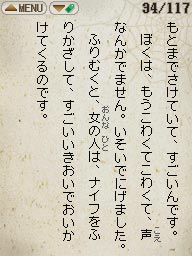 MENU
94/117
もとまでさけていて、すごいんです。
ぼくは、もうこわくてこわくて、声
こえ
なんかでません。いそいでにげました。
ふりむくと、女の人は、ナイフをふ
おんな ひと
りかざして、すごいいきおいでおいか
けてくるのです。